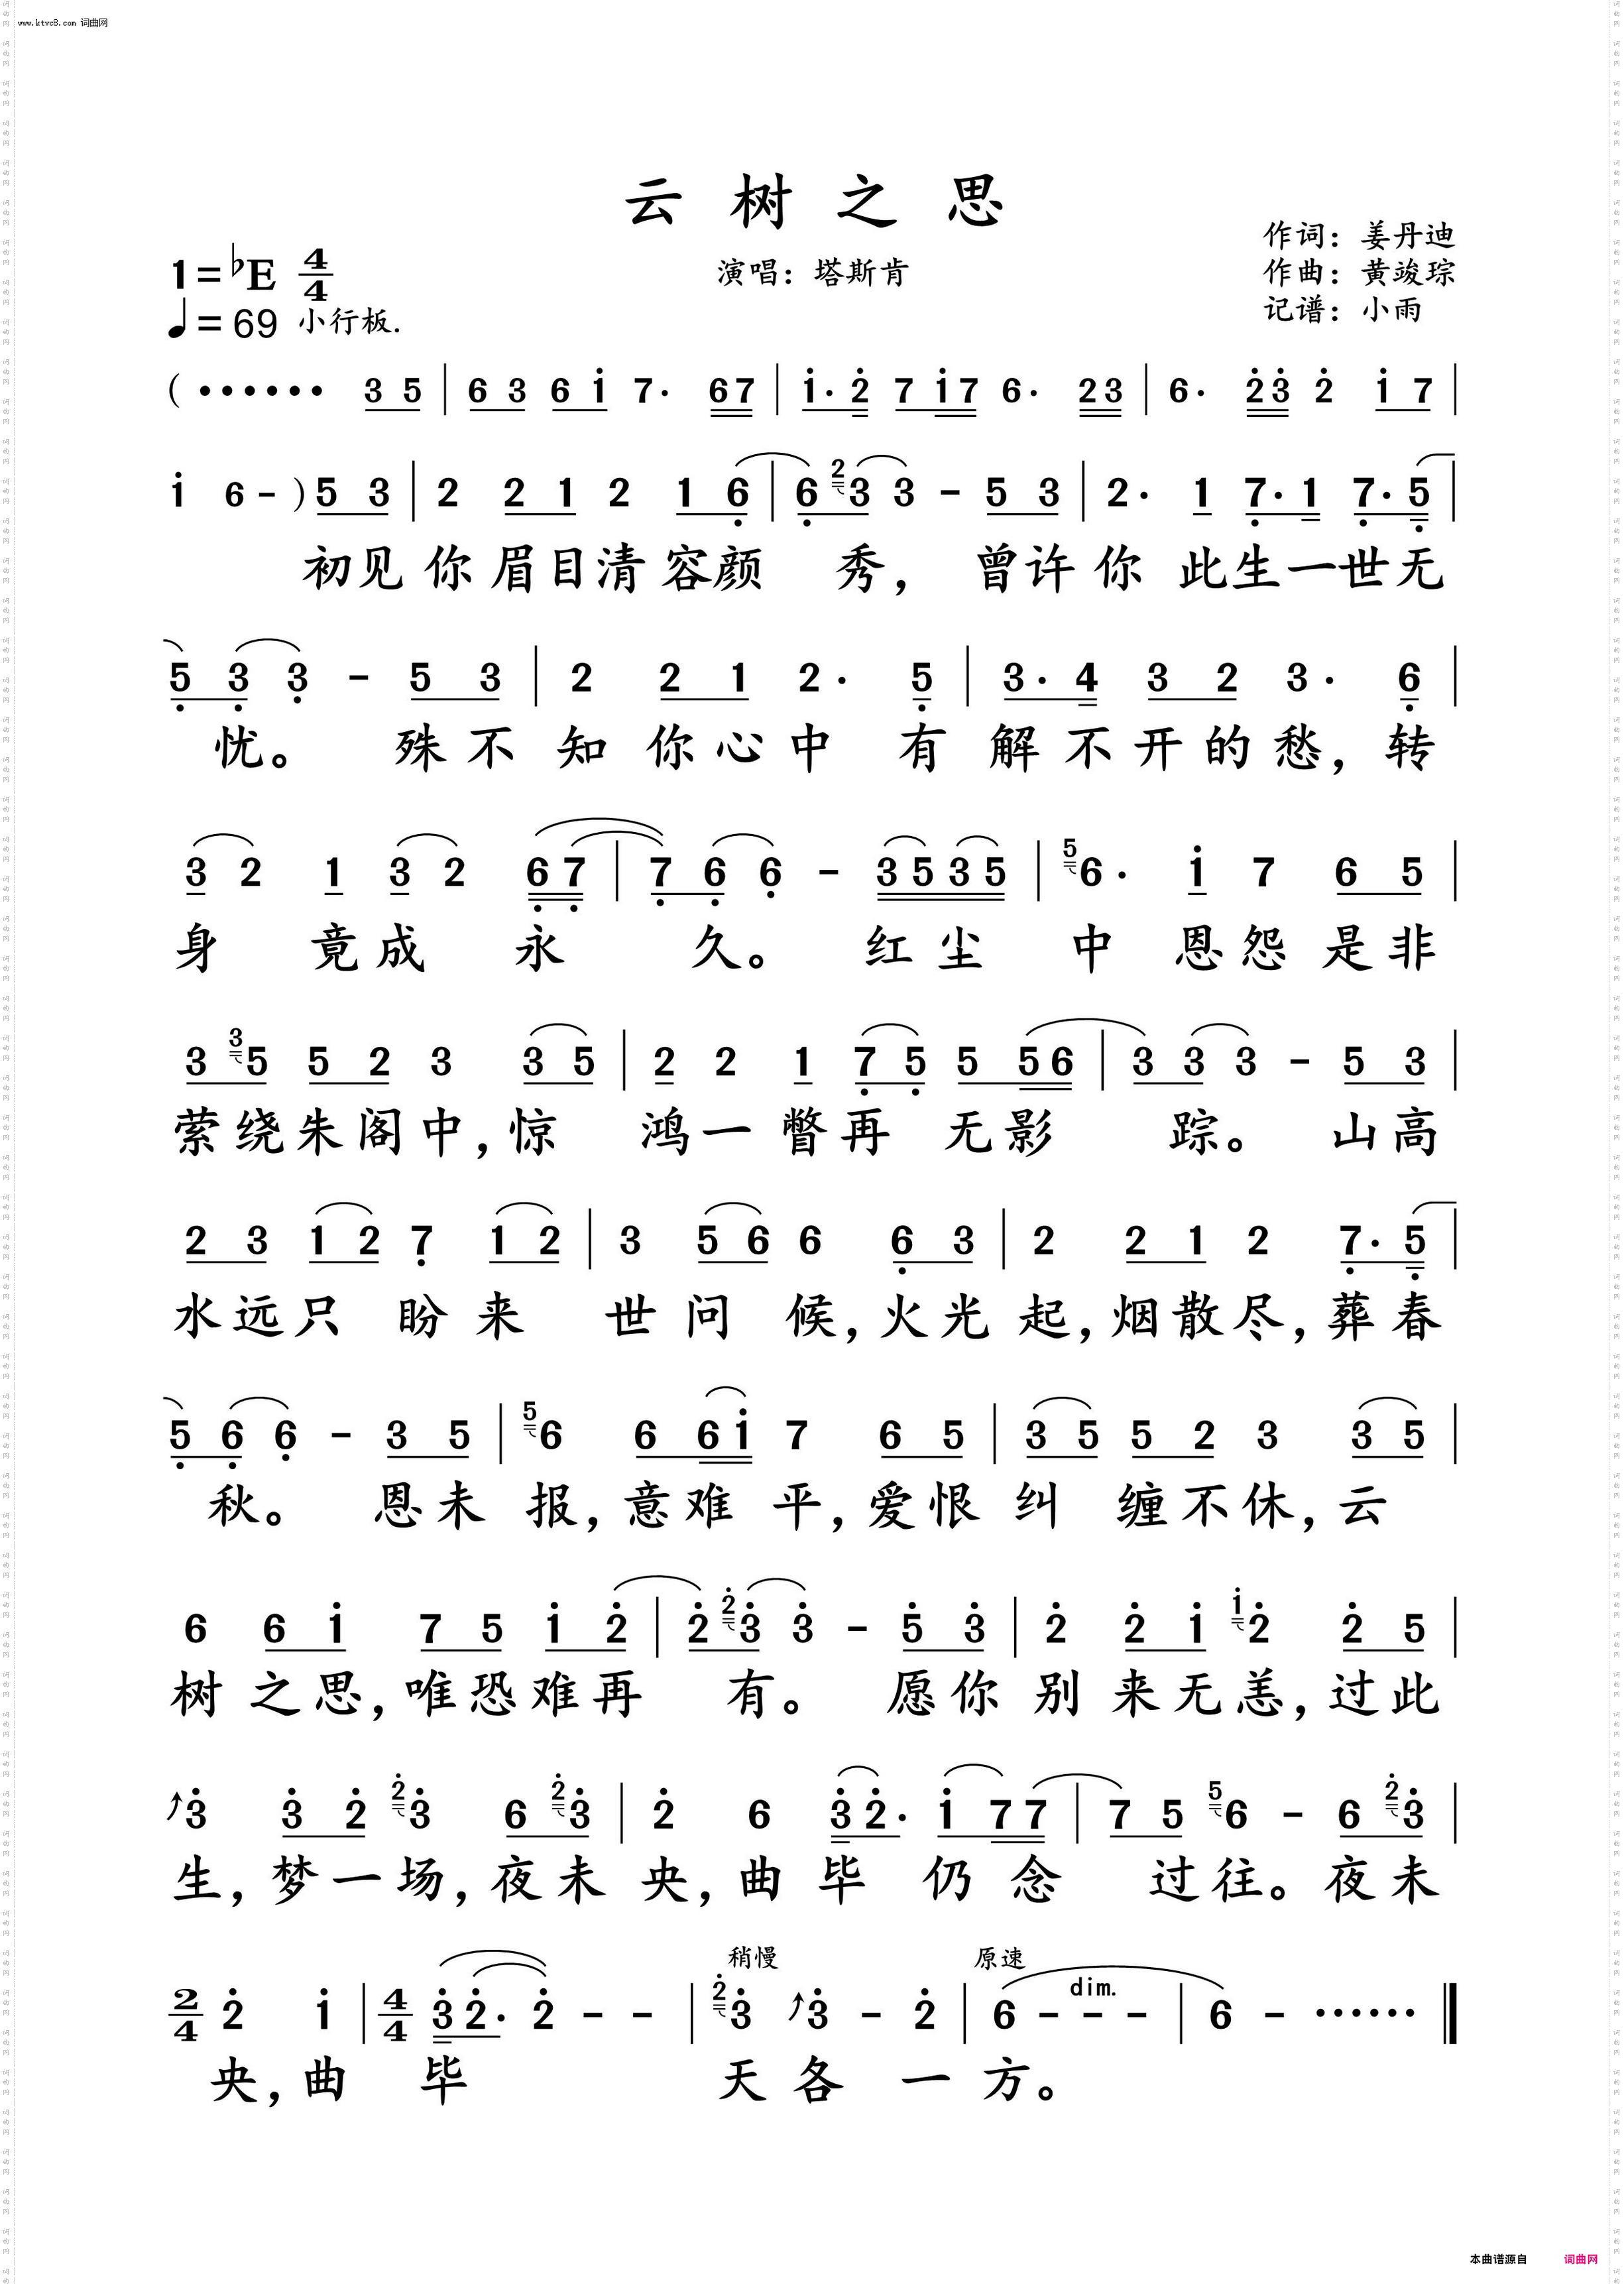 www.ktvc8.com 词曲网
云树之思
作词：姜丹迪
1=♭E 4/4 演唱：塔斯肯 作曲：黄竣琮
♩=69 小行板. 记谱：小雨
( ······ 3 5 | 6 3 6 i 7· 6 7 | i· 2 7 i 7 6· 2 3 | 6· 2 3 2 i 7 |
i 6 - ) 5 3 | 2 2 1 2 1 6 | 6 2 3 3 - 5 3 | 2· 1 7· 1 7· 5 |
初见你眉目清容颜 秀，曾许你此生一世无
5 3 3 - 5 3 | 2 2 1 2· 5 | 3· 4 3 2 3· 6 |
忧。殊不知你心中有解不开的愁，转
3 2 1 3 2 6 7 | 7 6 6 - 3 5 3 5 | 5 6· i 7 6 5 |
身竟成永 久。红尘中恩怨是非
3 3 5 5 2 3 3 5 | 2 2 1 7 5 5 5 6 | 3 3 3 - 5 3 |
萦绕朱阁中，惊鸿一瞥再无影 踪。山高
2 3 1 2 7 1 2 | 3 5 6 6 6 3 | 2 2 1 2 7· 5 |
水远只盼来世问候，火光起，烟散尽，葬春
5 6 6 - 3 5 | 5 6 6 6 i 7 6 5 | 3 5 5 2 3 3 5 |
秋。恩未报，意难平，爱恨纠缠不休，云
6 6 i 7 5 i 2 | 2 2 3 3 - 5 3 | 2 2 i i 2 2 5 |
树之思，唯恐难再 有。愿你别来无恙，过此
3 3 2 2 3 6 2 3 | 2 6 3 2· i 7 7 | 7 5 5 6 - 6 2 3 |
生，梦一场，夜未央，曲毕仍念 过往。夜未
稍慢 原速
dim.
2/4 2 i | 4/4 3 2· 2 - - | 2 3 3 - 2 | 6 - - - | 6 - ······
央，曲毕 天各一方。
本曲谱源自 词曲网